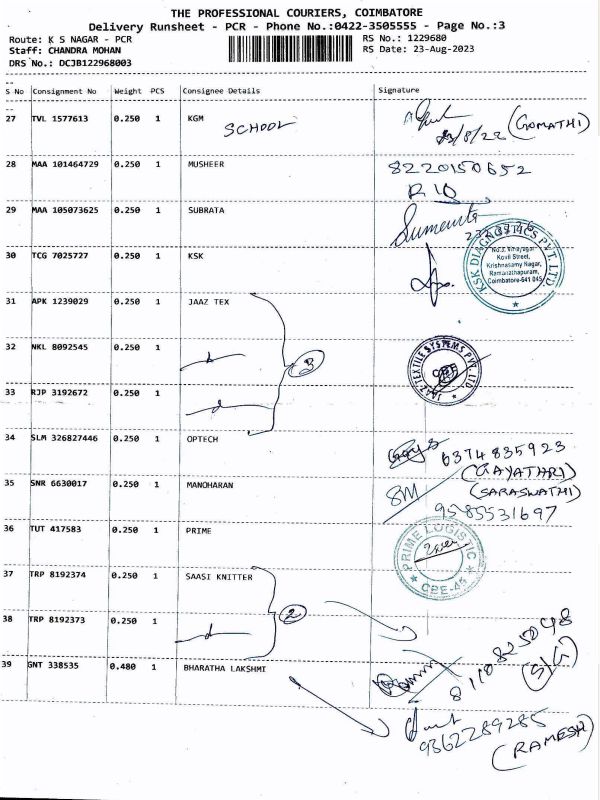 THE PROFESSIONAL COURIERS, COIMBATORE
Delivery Runsheet - PCR - Phone No.:0422-3505555 - Page No.:3
Route: K S NAGAR - PCR
RS No.: 1229680
Staff: CHANDRA MOHAN
RS Date: 23-Aug-2023
DRS No.: DCJB122968003
S No Consignment No Weight PCS Consignee Details Signature
27 TVL 1577613 0.250 1 KGM
SCHOOL
(GOMATHI)
28 MAA 101464729 0.250 1 MUSHEER 8220150652
29 MAA 105073625 0.250 1 SUBRATA
30 TCG 7025727 0.250 1 KSK
KSK DIAGNOSTICS PVT. LTD
No.3, Vinayagar
Kovil Street,
Krishnasamy Nagar,
Ramanathapuram,
Coimbatore-641 045
31 APK 1239029 0.250 1 JAAZ TEX
32 NKL 8092545 0.250 1
3
JAAZ TEXTILE SYSTEMS PVT. LTD.
CBE
33 RJP 3192672 0.250 1
34 SLM 326827446 0.250 1 OPTECH 6374835923
(GAYATHRI)
35 SNR 6630017 0.250 1 MANOHARAN SM (SARASWATHI)
9585531697
36 TUT 417583 0.250 1 PRIME
PRIME LOGISTIC
CBE-45
37 TRP 8192374 0.250 1 SAASI KNITTER
2
38 TRP 8192373 0.250 1
8110825048
39 GNT 338535 0.480 1 BHARATHA LAKSHMI
9362289285
(RAMESH)